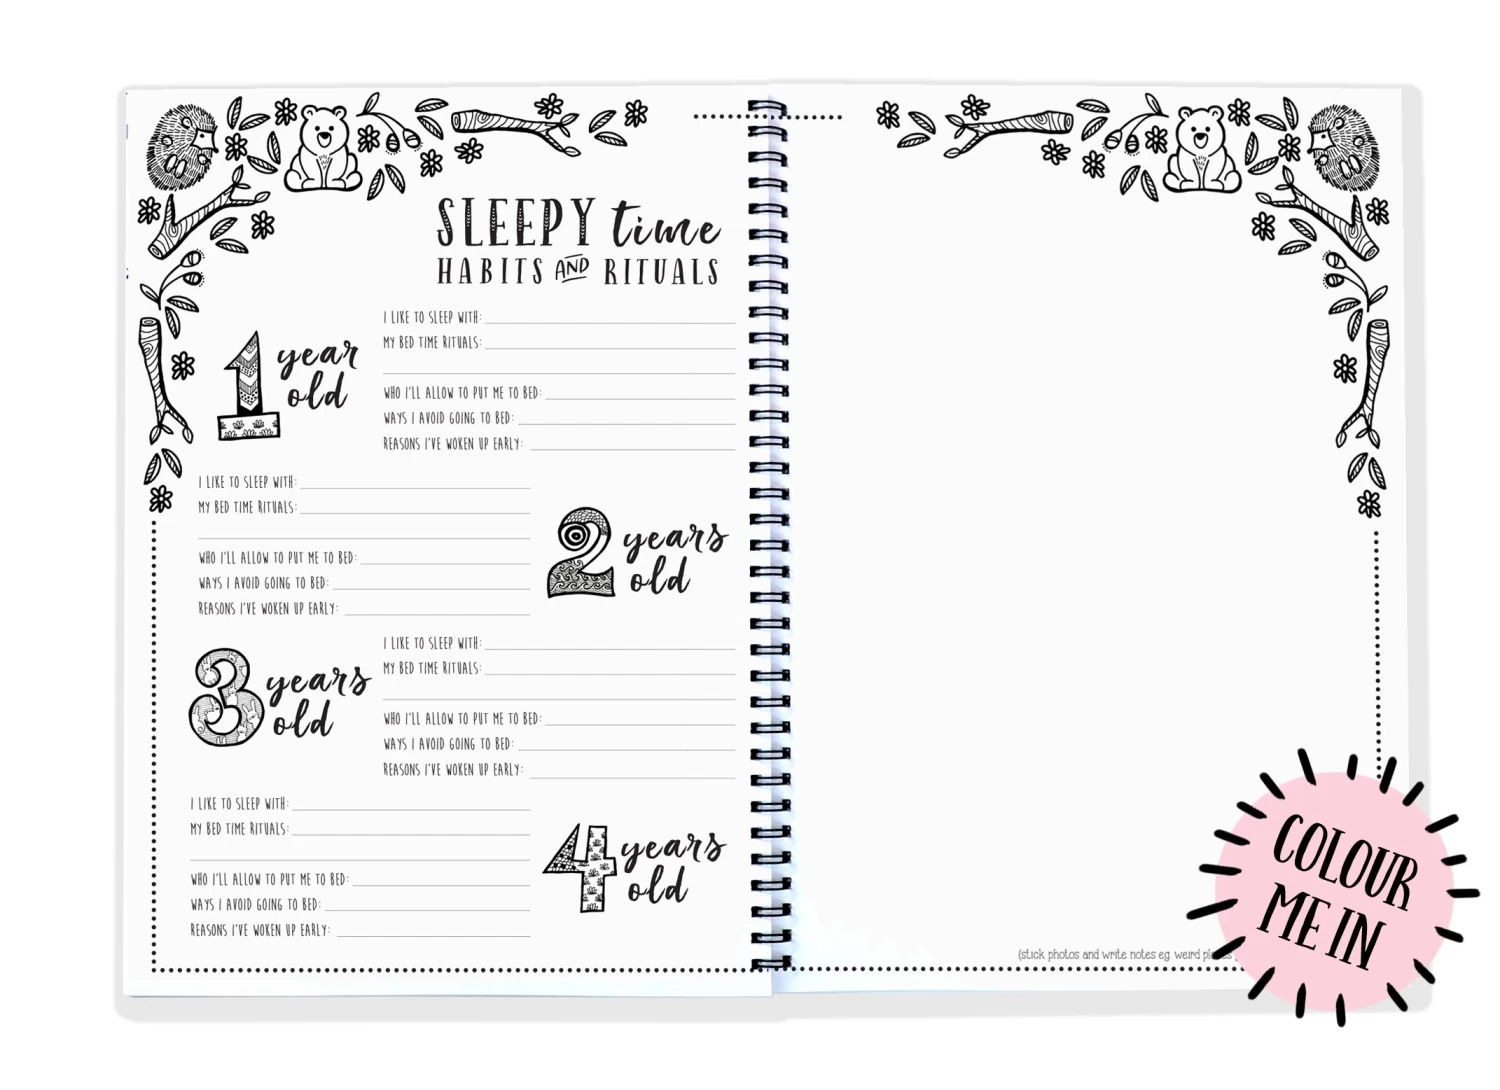 SLEEPY time
HABITS AND RITUALS
1 year
old
I LIKE TO SLEEP WITH:
MY BED TIME RITUALS:
WHO I'LL ALLOW TO PUT ME TO BED:
WAYS I AVOID GOING TO BED:
REASONS I'VE WOKEN UP EARLY:
2 years
old
I LIKE TO SLEEP WITH:
MY BED TIME RITUALS:
WHO I'LL ALLOW TO PUT ME TO BED:
WAYS I AVOID GOING TO BED:
REASONS I'VE WOKEN UP EARLY:
3 years
old
I LIKE TO SLEEP WITH:
MY BED TIME RITUALS:
WHO I'LL ALLOW TO PUT ME TO BED:
WAYS I AVOID GOING TO BED:
REASONS I'VE WOKEN UP EARLY:
4 years
old
I LIKE TO SLEEP WITH:
MY BED TIME RITUALS:
WHO I'LL ALLOW TO PUT ME TO BED:
WAYS I AVOID GOING TO BED:
REASONS I'VE WOKEN UP EARLY:
(stick photos and write notes eg. weird
COLOUR
ME IN